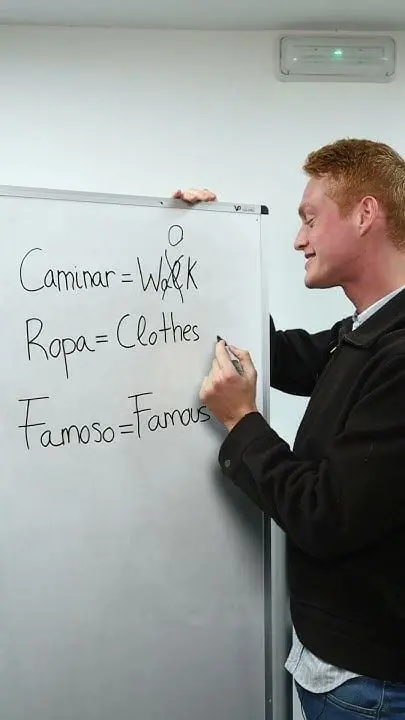 O
Caminar = Walk
Ropa = Clothes
Famoso = Famous